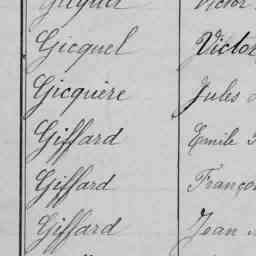 Gicquel Victor
Gicquel Victor
Gicquère Jules
Giffard Emile
Giffard
Giffard Jean